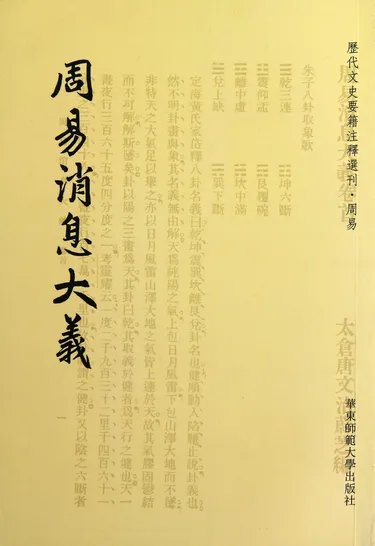 歷代文史要籍注釋選刊·周易
華東師範大學出版社
周易消息大義
太倉唐文治蔚芝編
朱子八卦取象歌
☰乾三連 ☷坤六斷
☳震仰盂 ☶艮覆碗
☲離中虛 ☵坎中滿
☱兌上缺 ☴巽下斷
定海黃氏家岱釋八卦名義曰乾坤震巽坎離艮兌卦名也健順動入陷麗止說卦義也
然不明卦畫與象其名義無由解天爲純陽之氣上包日月風雷下包山澤大地而不
非特天之大氣足以舉之亦以日月風雷山澤大地之氣皆上連於天故其氣膠固鬱結
而不可解解斯墜矣卦以陽之三畫爲天其卦曰乾其取義於健者爲天行之健也天一
晝夜行三百六十五度四分度之一考靈曜云一度二千九百三十二里千四百六十一
之健卦又以陰之六斷者
一